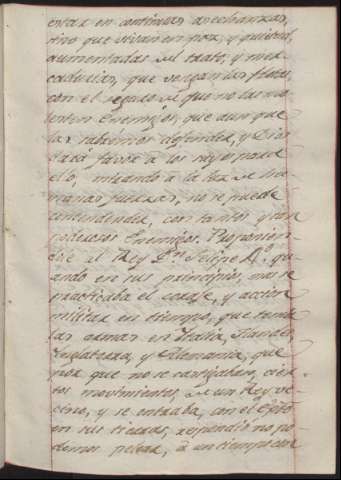 estar en continuas asechanzas,
sino que vivan en paz, y quietud,
aumentadas del trato, y mer-
cadurias, que vengan las flotas,
con el seguro de que no las mo-
lesten Enemigos, que aunque
las sabremos defender, y Dios
dará favor a los suyos para
ello, mirando a la luz de hu-
manas fuerzas, no se puede
contender, con tantos y tan
poderosos Enemigos. Proponien-
dole al Rey Dn. Felipe 2º. qu-
ando en sus principios, mas se
practicaba el corage, y accion
militar en tiempo, que tenia
las armas en Italia, Flandes,
Inglaterra, y Alemania, que
por que no se castigaban, cier-
tos movimientos, de un Rey ve-
cino, y se entraba, con el Exto.
en sus tierras, respondió no po-
demos pelear, a un tiempo con